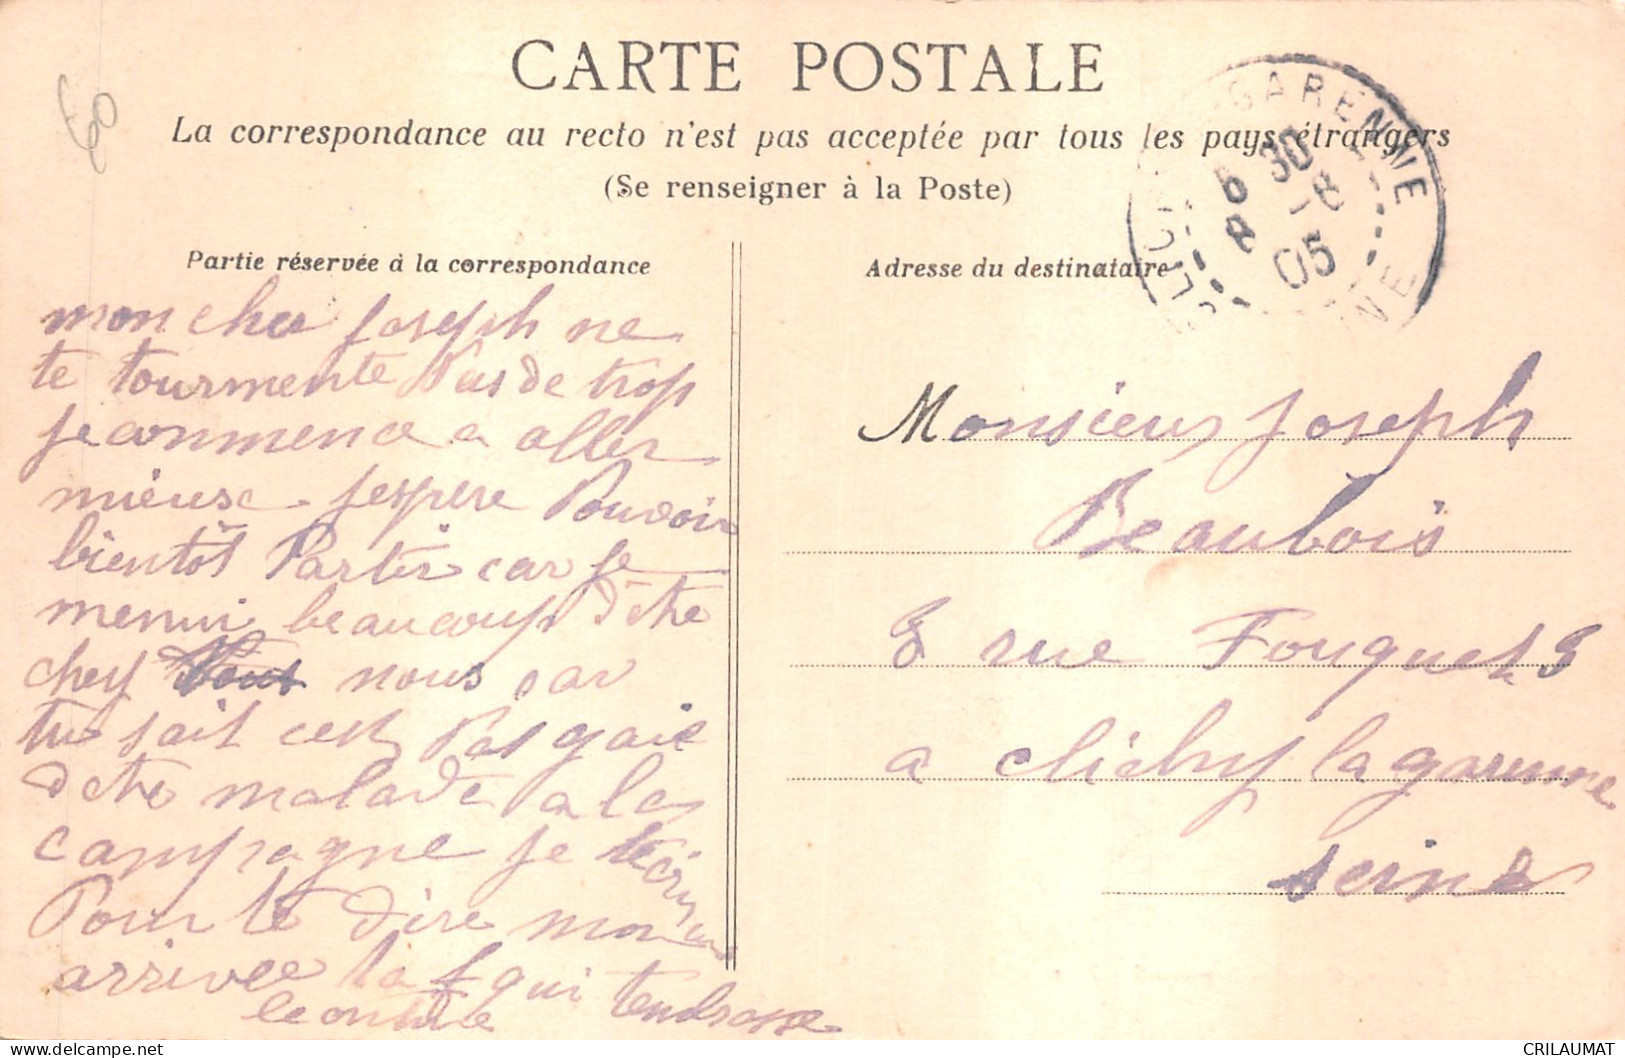 CARTE POSTALE
La correspondance au recto n'est pas acceptée par tous les pays étrangers
(Se renseigner à la Poste)
60
GARENNE
6 30
8 -8
05
Partie réservée à la correspondance
mon cher Joseph ne
te tourmente Pas de trop
je commence a aller
mieuse jespere Pouvoir
bientôt Partir car je
menui beaucoup d'etre
chez nous car
tu sait cest Pas gaie
detre malade a la
campagne je tecrirai
Pour te dire mon
arrivee la qui tendrasse
leontine
Adresse du destinataire
Monsieur Joseph
Beaubois
8 rue Fouquet 8
a clichy la garenne
seine
CRILAUMAT